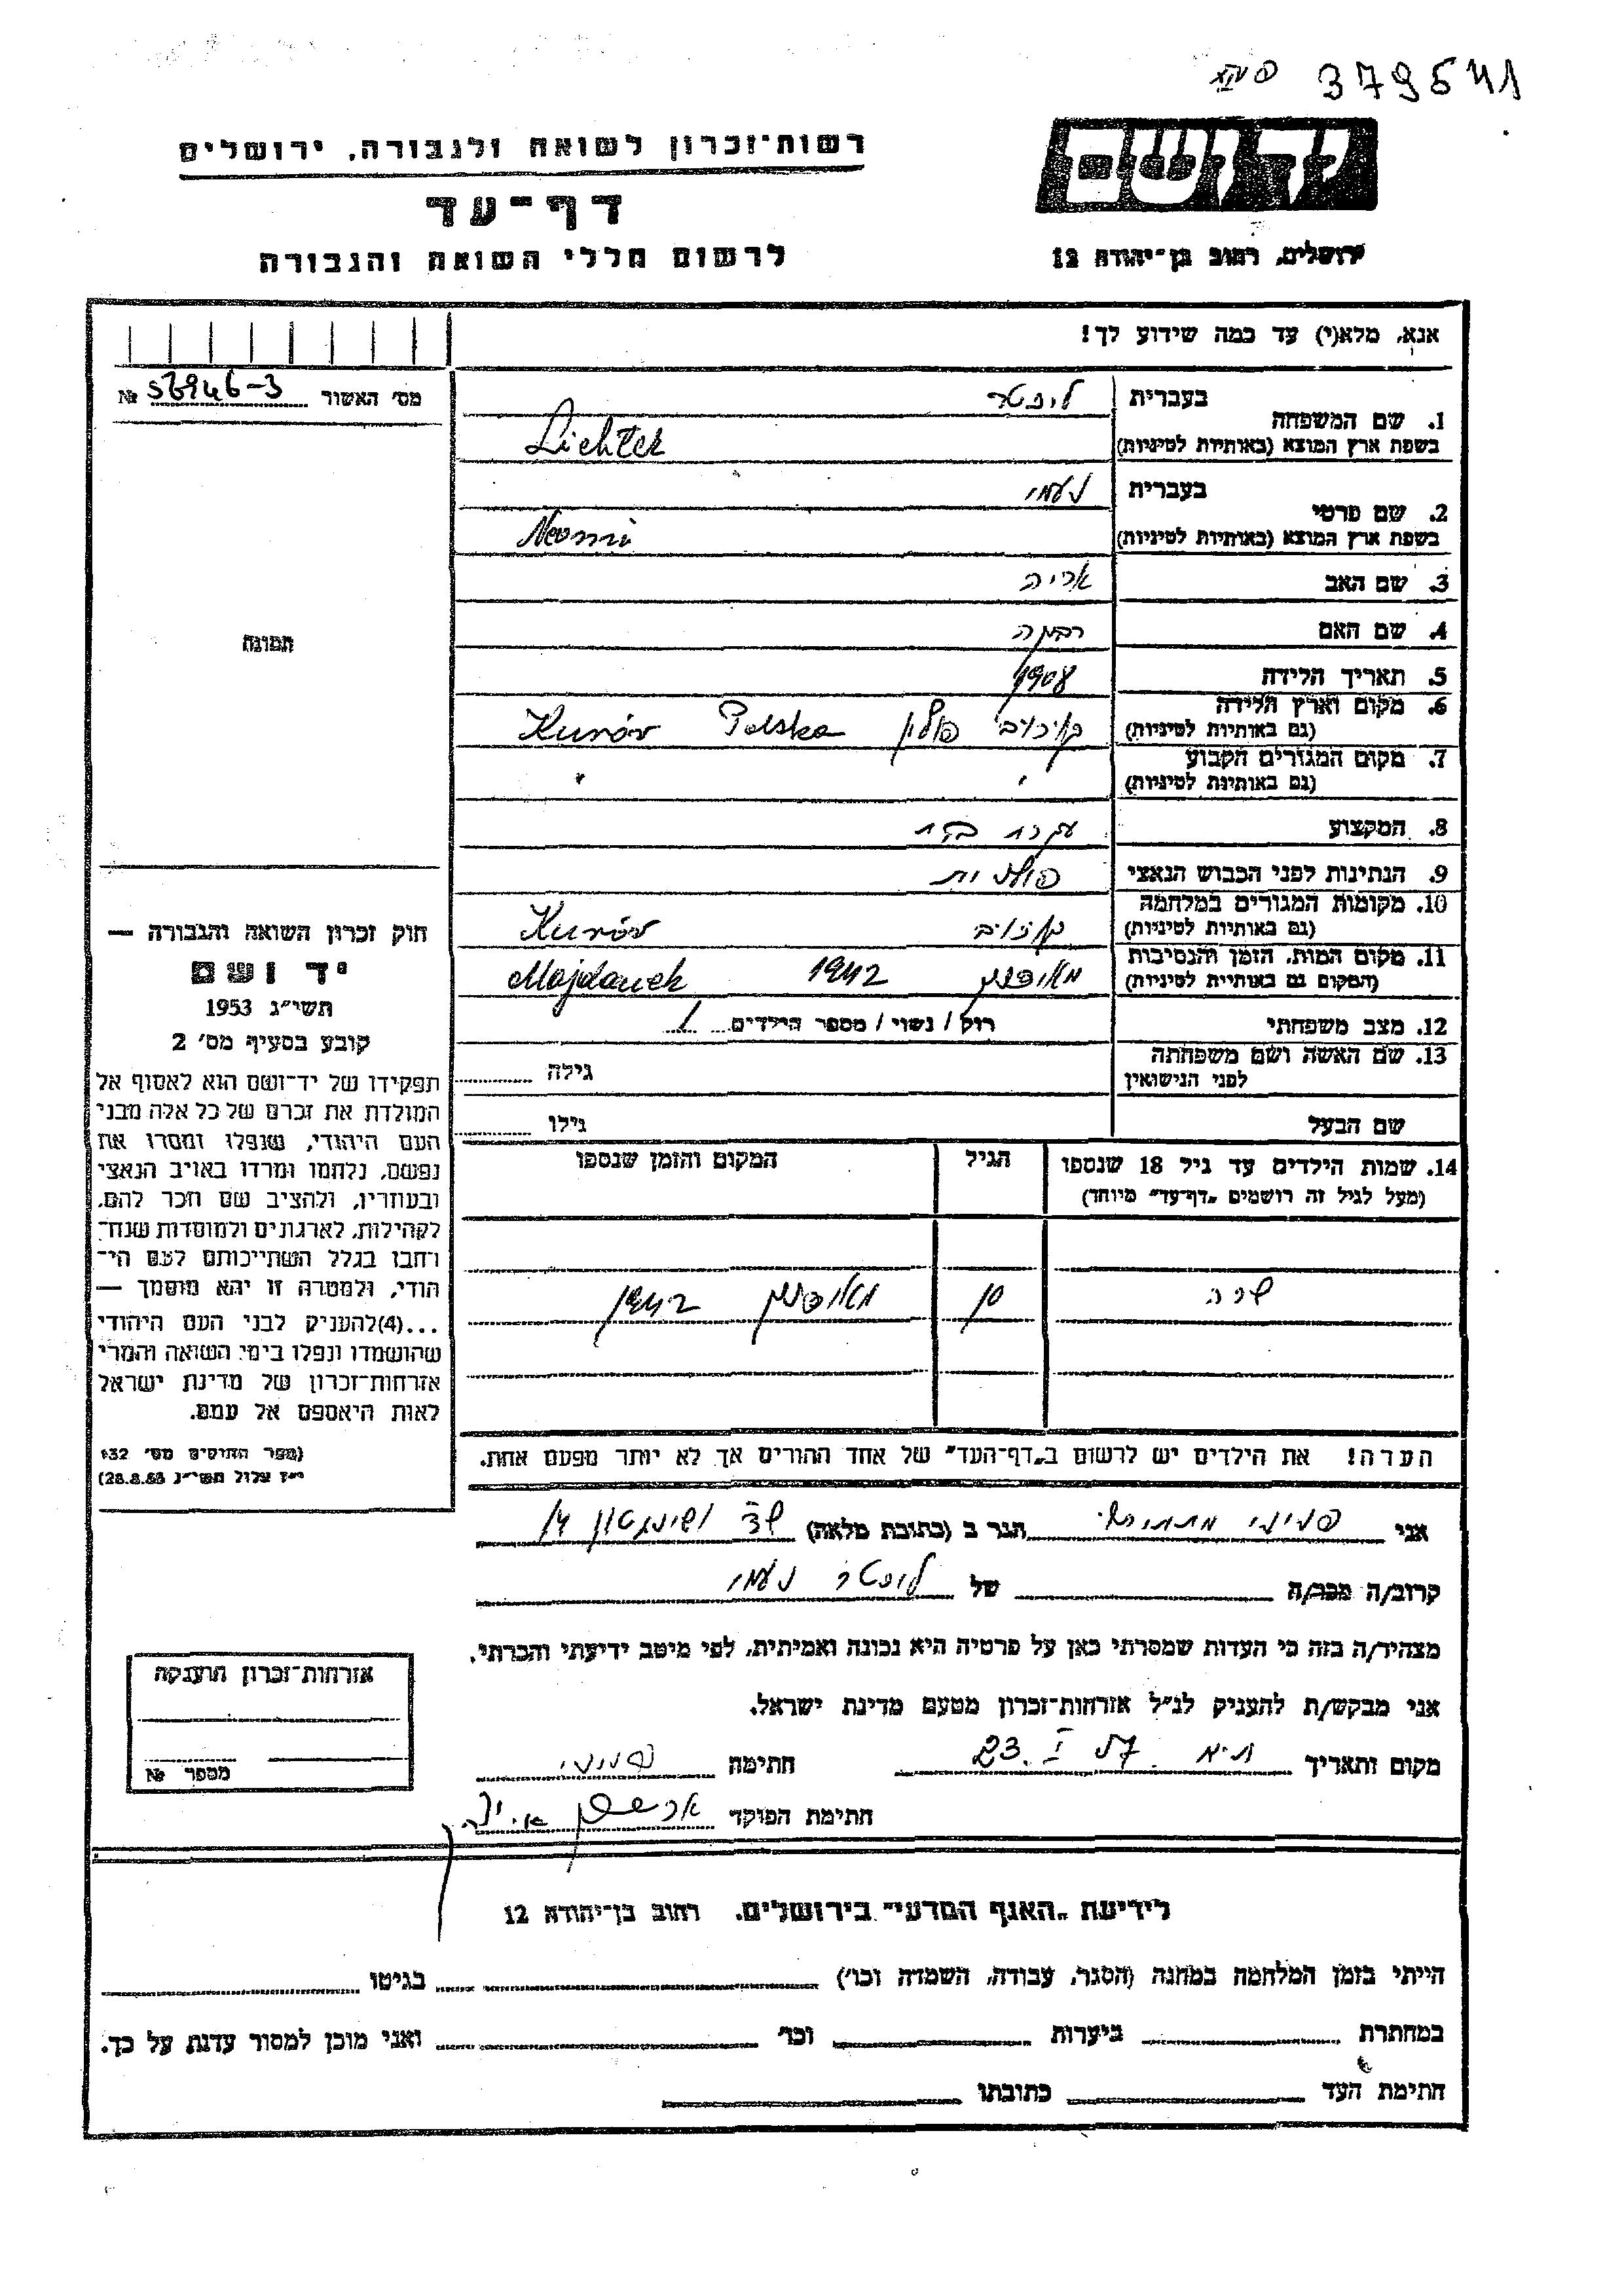 379541
יד ושם
רשות־זכרון לשואה ולגבורה, ירושלים
דף־עד
לרשום חללי השואה והגבורה
ירושלים, רחוב בן־יהודה 12
אנא, מלא(י) עד כמה שידוע לך!
מס׳ האשור № 56946-3
1. שם המשפחה בעברית ליכטר
בשפת ארץ המוצא (באותיות לטיניות) Lichter
2. שם פרטי בעברית נעמי
בשפת ארץ המוצא (באותיות לטיניות) Neomi
3. שם האב אריה
4. שם האם רבקה
תמונה
5. תאריך הלידה 1908
6. מקום וארץ הלידה (גם באותיות לטיניות) קורוב פולין Polska Kurów
7. מקום המגורים הקבוע (גם באותיות לטיניות) " "
8. המקצוע עקרת בית
9. הנתינות לפני הכבוש הנאצי פולנית
10. מקומות המגורים במלחמה (גם באותיות לטיניות) קורוב Kurów
11. מקום המות, הזמן והנסיבות (המקום גם באותיית לטיניות) מאידנק 1942 Majdanek
12. מצב משפחתי רוק / נשוי / מספר הילדים 1
13. שם האשה ושם משפחתה לפני הנישואין גילה
שם הבעל גילו
14. שמות הילדים עד גיל 18 שנספו (מעל לגיל זה רושמים „דף־עד״ מיוחד) הגיל המקום והזמן שנספו
שרה 10 מאידנק 1942
הערה! את הילדים יש לרשום ב„דף־העד״ של אחד ההורים אך לא יותר מפעם אחת.
חוק זכרון השואה והגבורה —
יד ושם
תשי״ג 1953
קובע בסעיף מס׳ 2
תפקידו של יד־ושם הוא לאסוף אל
המולדת את זכרם של כל אלה מבני
העם היהודי, שנפלו ומסרו את
נפשם, נלחמו ומרדו באויב הנאצי
ובעוזריו, ולהציב שם וזכר להם,
לקהילות, לארגונים ולמוסדות שנח־
רחבו בגלל השתייכותם לעם הי־
הודי, ולמטרה זו יהא מוסמך —
...(4)להעניק לבני העם היהודי
שהושמדו ונפלו בימי השואה והמרי
אזרחות־זכרון של מדינת ישראל
לאות היאספם אל עמם.
(ספר החוקים מס׳ 132
י״ז אלול תשי״ג 28.8.53)
אני פנini מתתיהו הגר ב (כתובת מלאה) שד ושינגטון 14
קרוב/ה מכר/ה של ליכטר נעמי
מצהיר/ה בזה כי העדות שמסרתי כאן על פרטיה היא נכונה ואמיתית, לפי מיטב ידיעתי והכרתי.
אני מבקש/ת להעניק לנ״ל אזרחות־זכרון מטעם מדינת ישראל.
מקום ותאריך ת״א 23. I 57 חתימה
חתימת הפוקד
אזרחות־זכרון הוענקה
מספר №
לידיעת „האגף המדעי״ בירושלים, רחוב בן־יהודה 12
הייתי בזמן המלחמה במחנה (הסגר, עבודה, השמדה וכו׳) בגיטו
במחתרת ביערות וכו׳ ואני מוכן למסור עדות על כך.
חתימת העד כתובתו